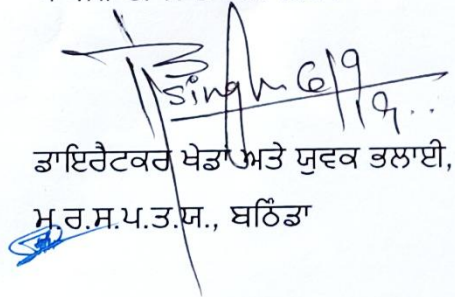 Singh
ਡਾਇਰੈਟਕਰ ਖੇਡਾਂ ਅਤੇ ਯੁਵਕ ਭਲਾਈ,
ਮ.ਰ.ਸ.ਪ.ਤ.ਯ., ਬਠਿੰਡਾ